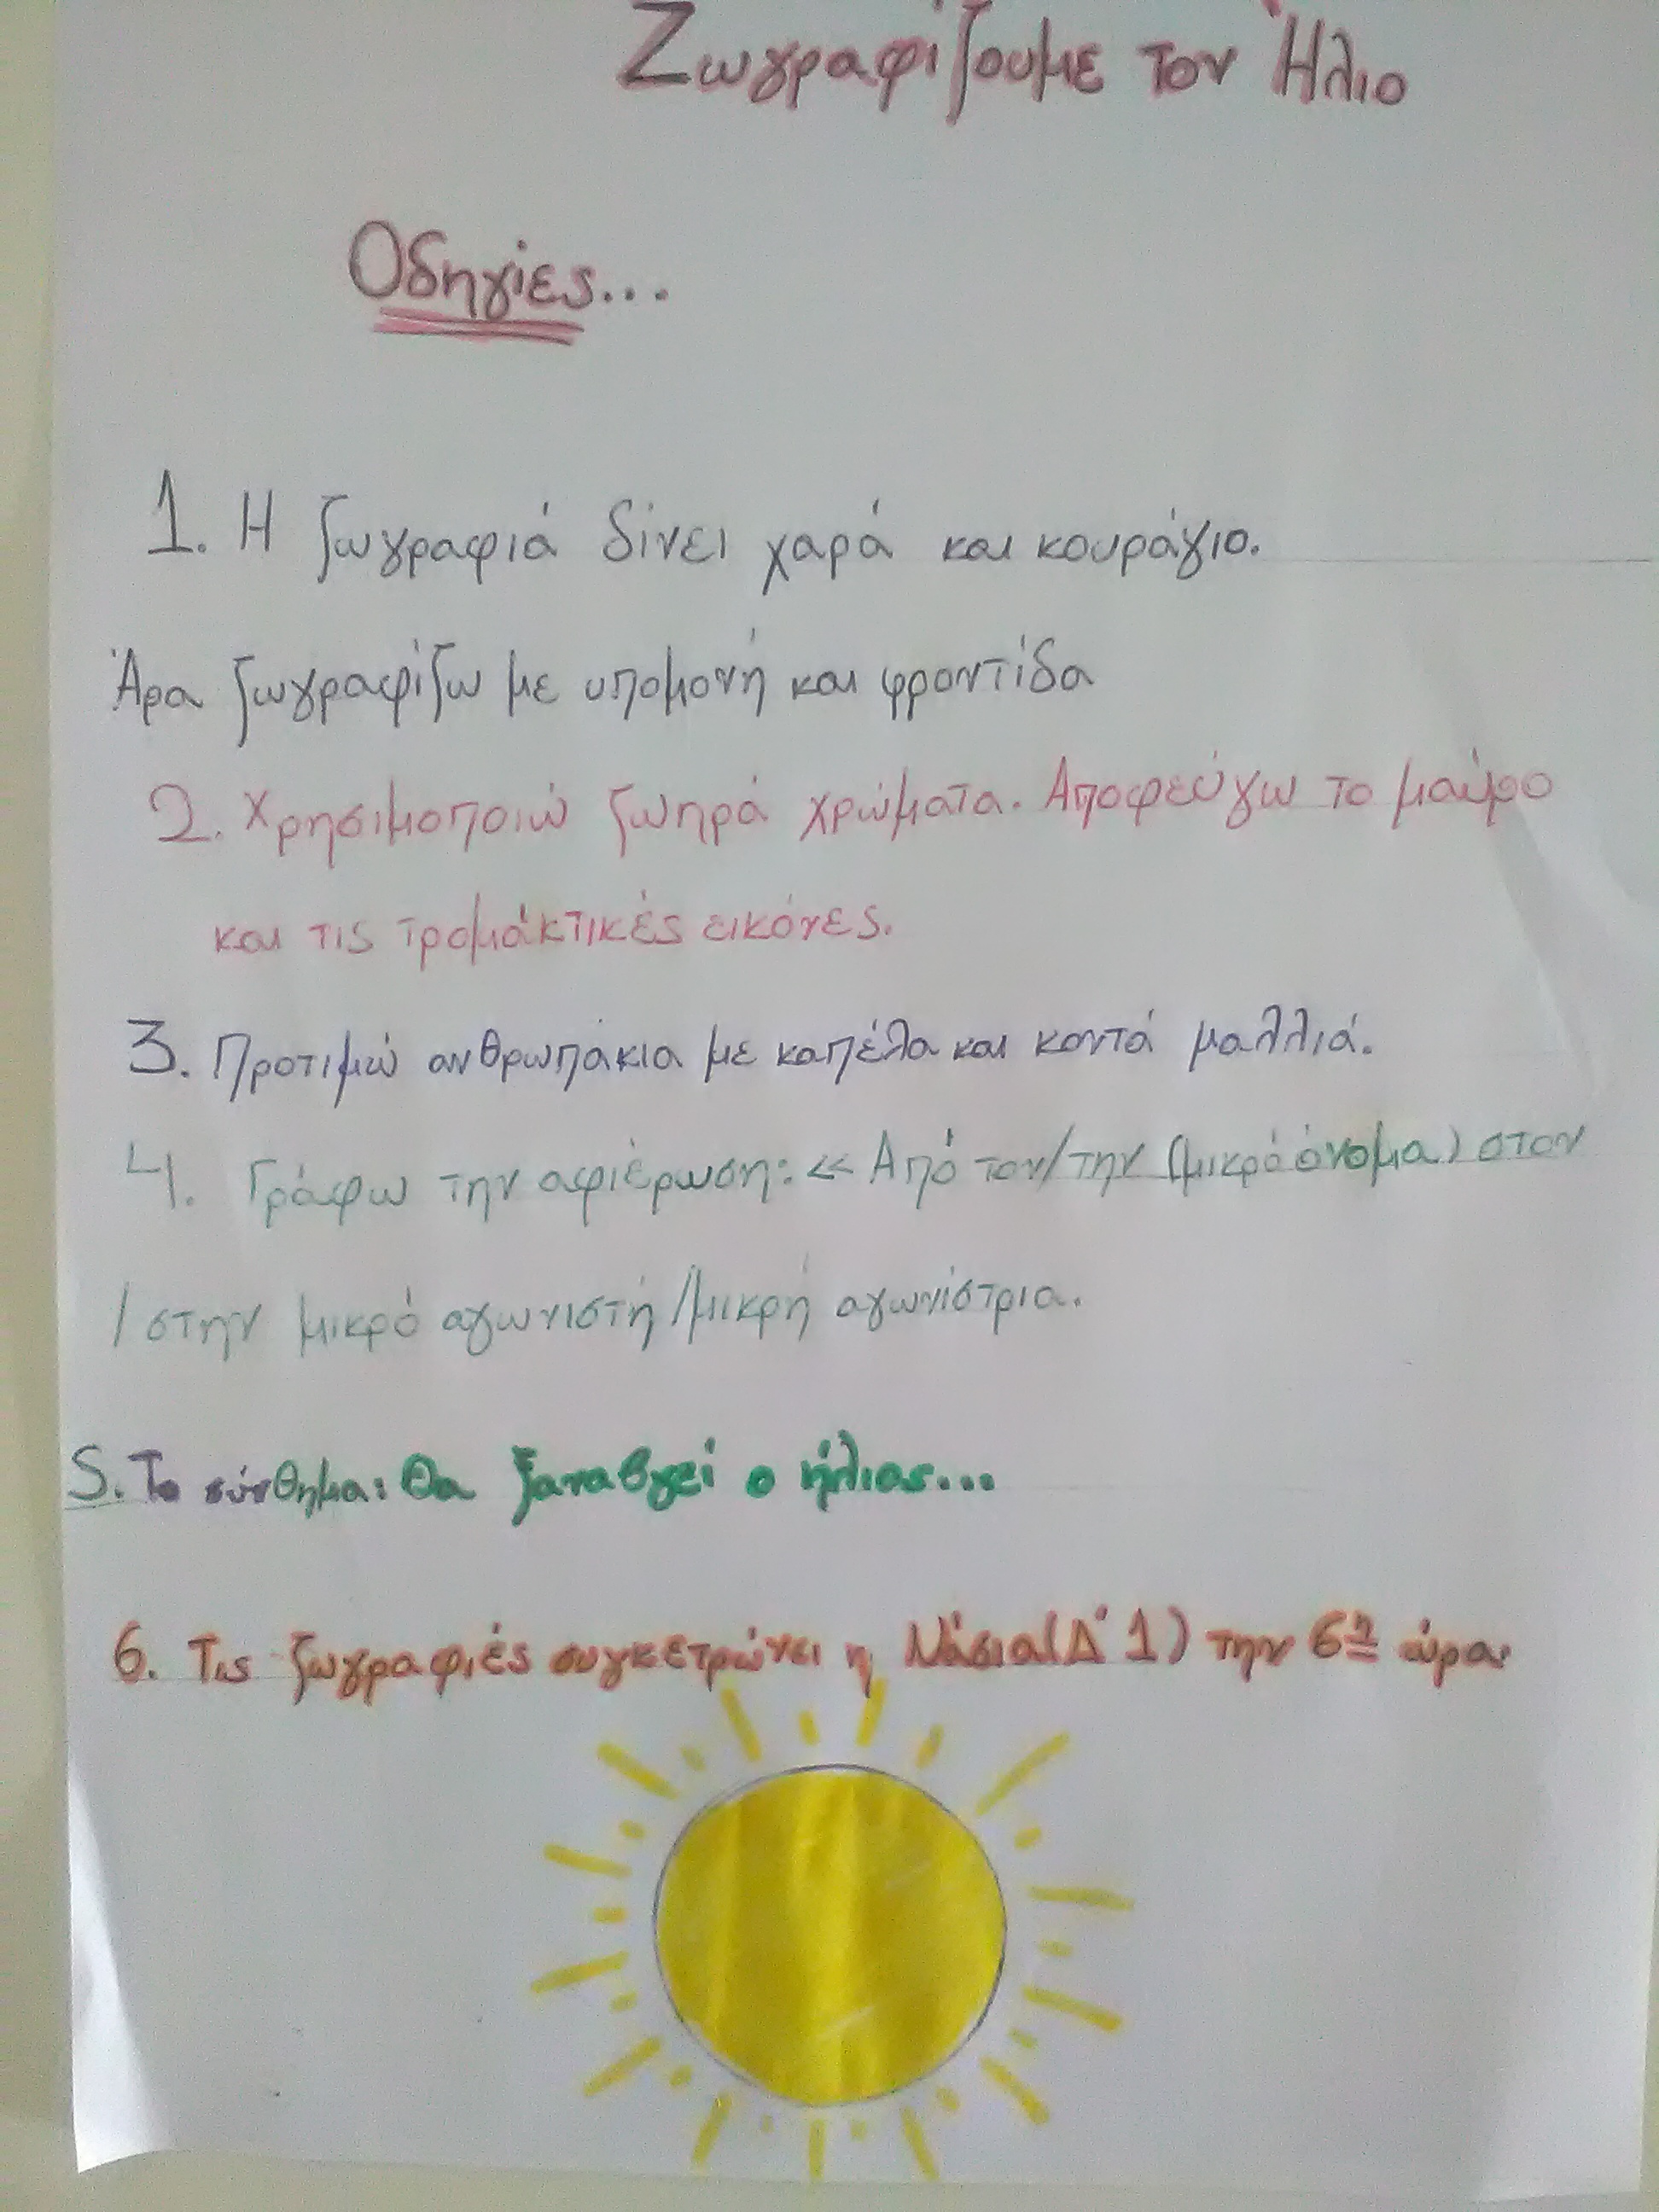 Ζωγραφίζουμε τον Ήλιο
Οδηγίες...
1. Η ζωγραφιά δίνει χαρά και κουράγιο.
Άρα ζωγραφίζω με υπομονή και φροντίδα
2. Χρησιμοποιώ ζωηρά χρώματα. Αποφεύγω το μαύρο
και τις τρομάκτικές εικόνες.
3. Προτιμώ ανθρωπάκια με καπέλα και κοντά μαλλιά.
4. Γράφω την αφιέρωση: « Από τον/την (μικρό όνομα) στον
/στην μικρό αγωνιστή/μικρή αγωνίστρια.
5. Το σύνθημα: Θα ξαναβγεί ο ήλιος...
6. Τις ζωγραφιές συγκετρώνει η Νάσια (Δ΄1) την 6η ώρα.